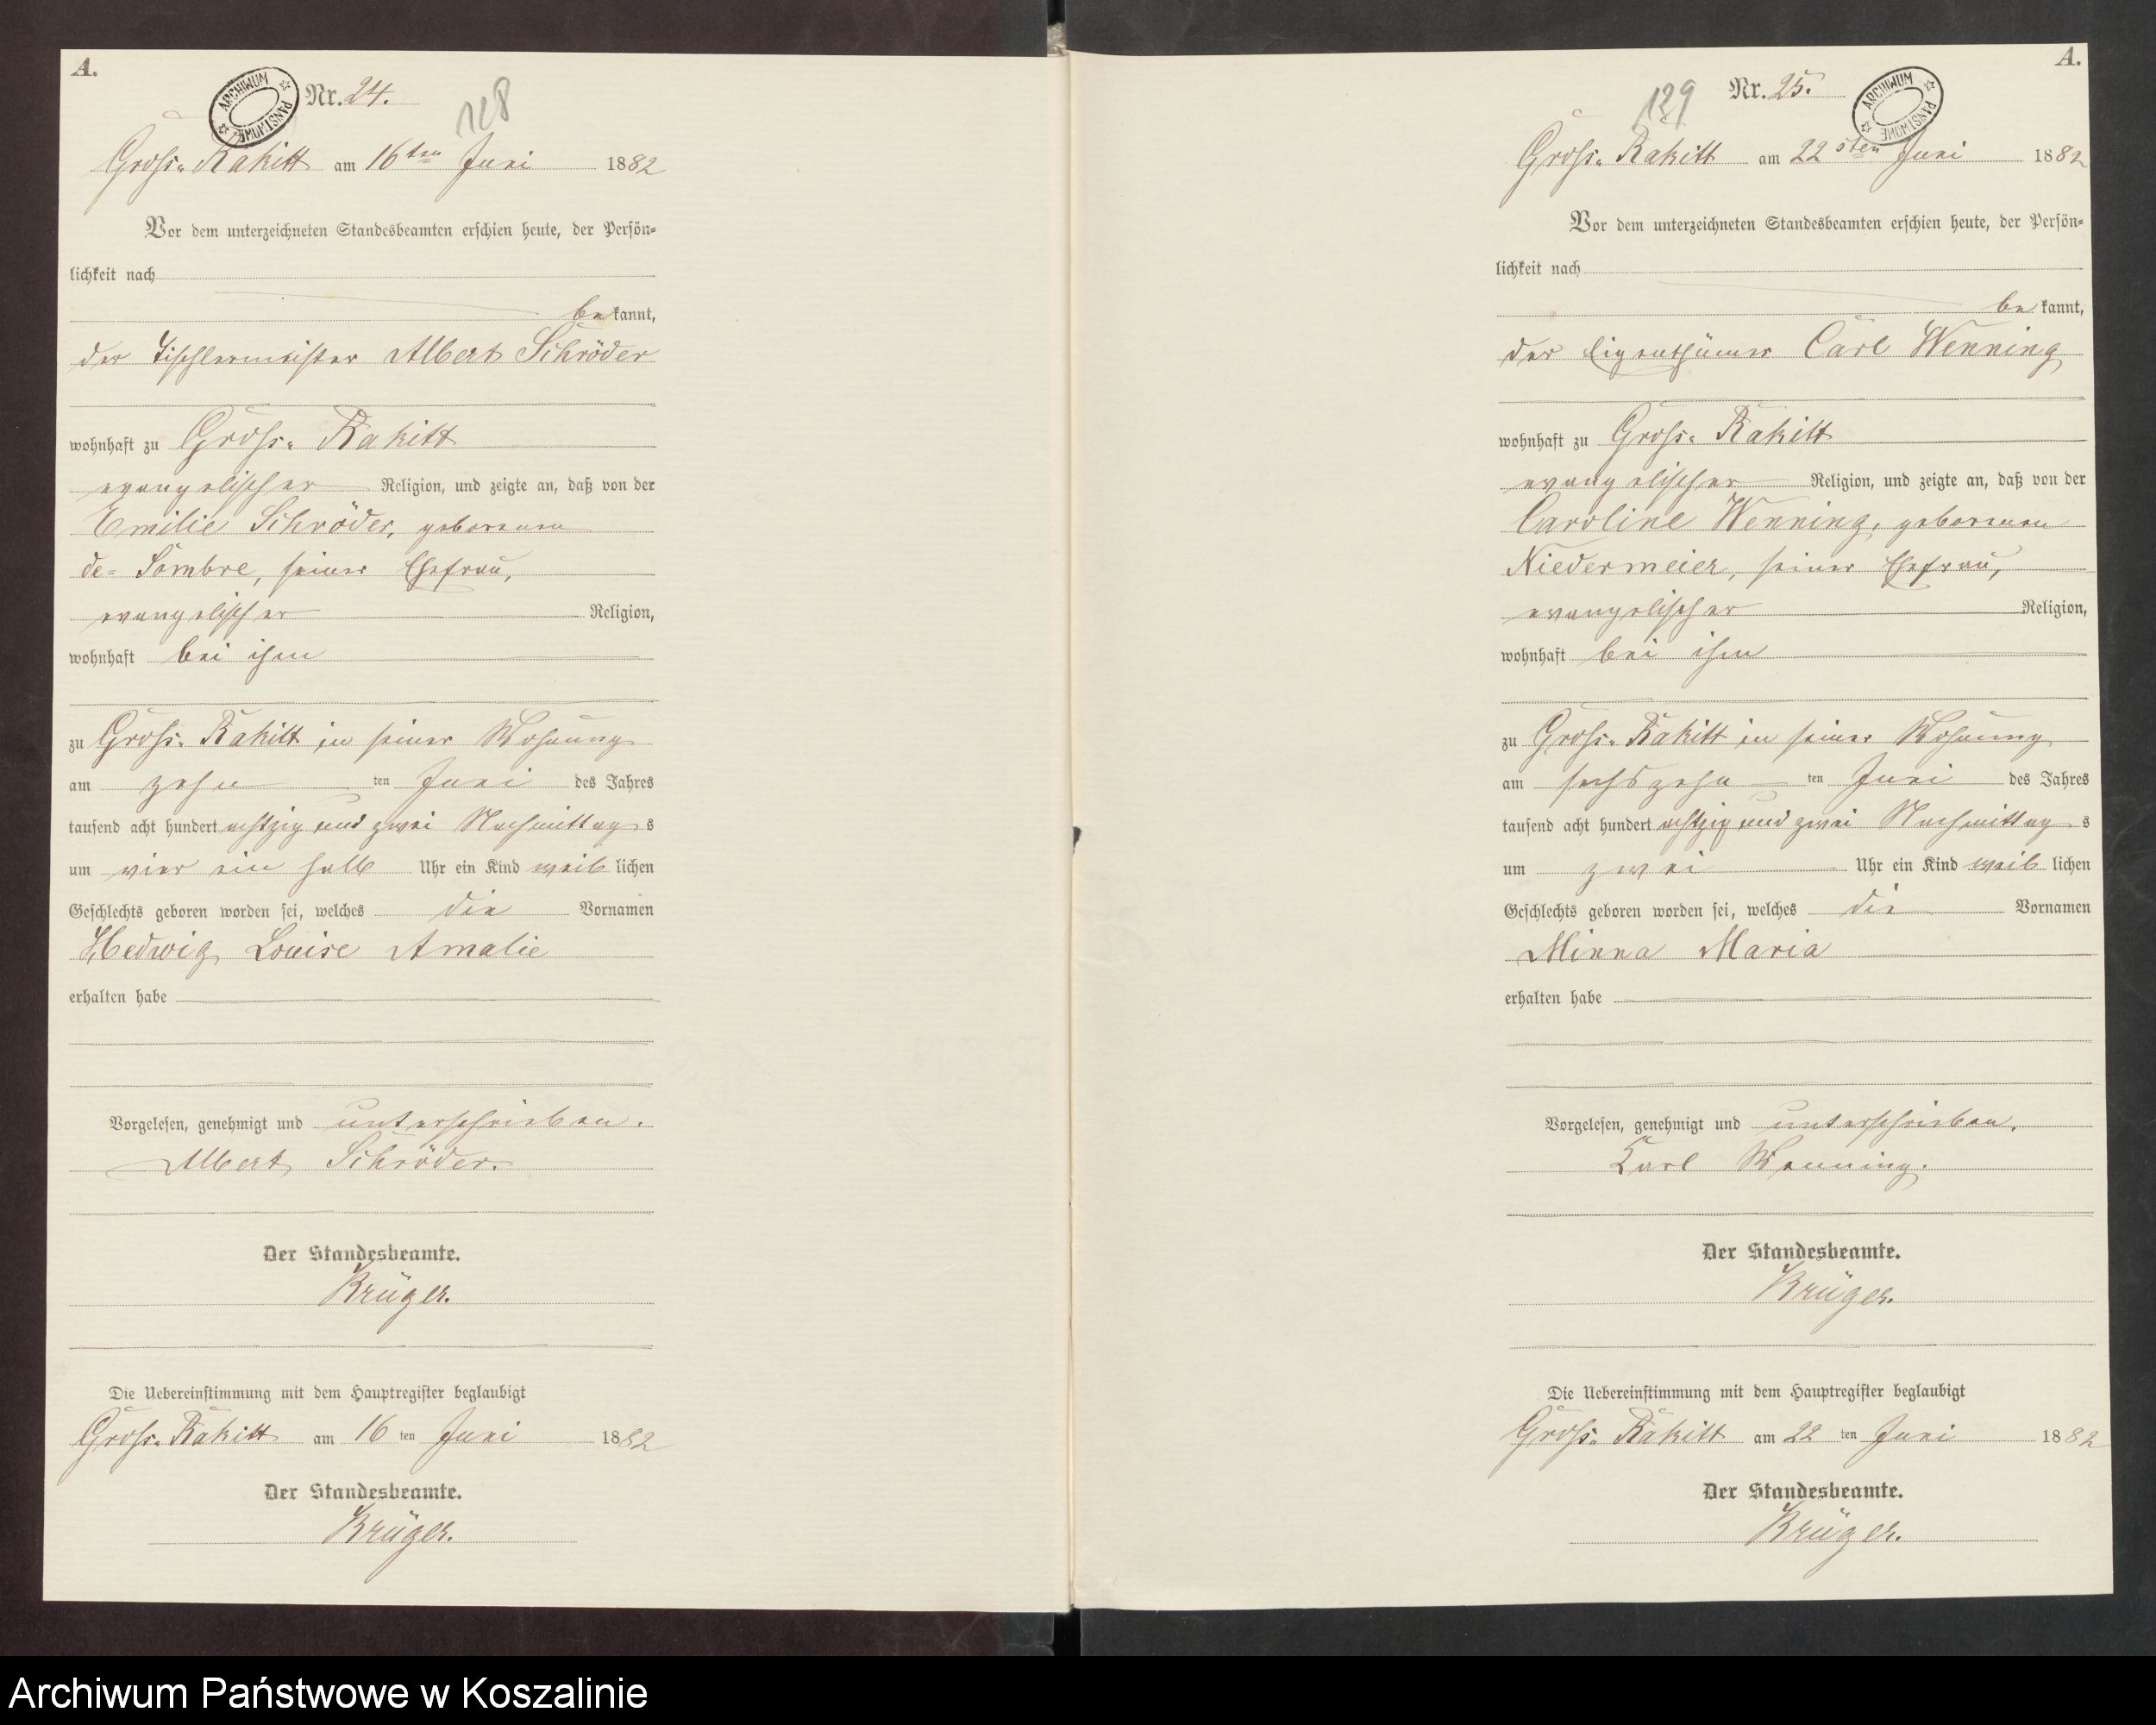 A.
ARCHIWUM PAŃSTWOWE
Nr. 24.
128
Groß-Rakitt am 16ten Juni 1882
Vor dem unterzeichneten Standesbeamten erschien heute, der Persön-
lichkeit nach
bekannt,
der Tischlermeister Albert Schröder
wohnhaft zu Groß-Rakitt
evangelischer Religion, und zeigte an, daß von der
Emilie Schröder, geborenen
de-Sombre, seiner Ehefrau,
evangelischer Religion,
wohnhaft bei ihm
zu Groß-Rakitt in seiner Wohnung
am zehn ten Juni des Jahres
tausend acht hundert achtzig und zwei Nachmittag s
um vier ein halb Uhr ein Kind weib lichen
Geschlechts geboren worden sei, welches die Vornamen
Hedwig Louise Amalie
erhalten habe
Vorgelesen, genehmigt und unterschrieben.
Albert Schröder.
Der Standesbeamte.
Krüger.
Die Uebereinstimmung mit dem Hauptregister beglaubigt
Groß-Rakitt am 16 ten Juni 1882
Der Standesbeamte.
Krüger.
A.
129
Nr. 25.
ARCHIWUM PAŃSTWOWE
Groß-Rakitt am 22sten Juni 1882
Vor dem unterzeichneten Standesbeamten erschien heute, der Persön-
lichkeit nach
bekannt,
der Eigenthümer Carl Wenning
wohnhaft zu Groß-Rakitt
evangelischer Religion, und zeigte an, daß von der
Caroline Wenning, geborenen
Niedermeier, seiner Ehefrau,
evangelischer Religion,
wohnhaft bei ihm
zu Groß-Rakitt in seiner Wohnung
am sechszehn ten Juni des Jahres
tausend acht hundert achtzig und zwei Nachmittag s
um zwei Uhr ein Kind weib lichen
Geschlechts geboren worden sei, welches die Vornamen
Minna Maria
erhalten habe
Vorgelesen, genehmigt und unterschrieben.
Karl Wenning.
Der Standesbeamte.
Krüger.
Die Uebereinstimmung mit dem Hauptregister beglaubigt
Groß-Rakitt am 22 ten Juni 1882
Der Standesbeamte.
Krüger.
Archiwum Państwowe w Koszalinie